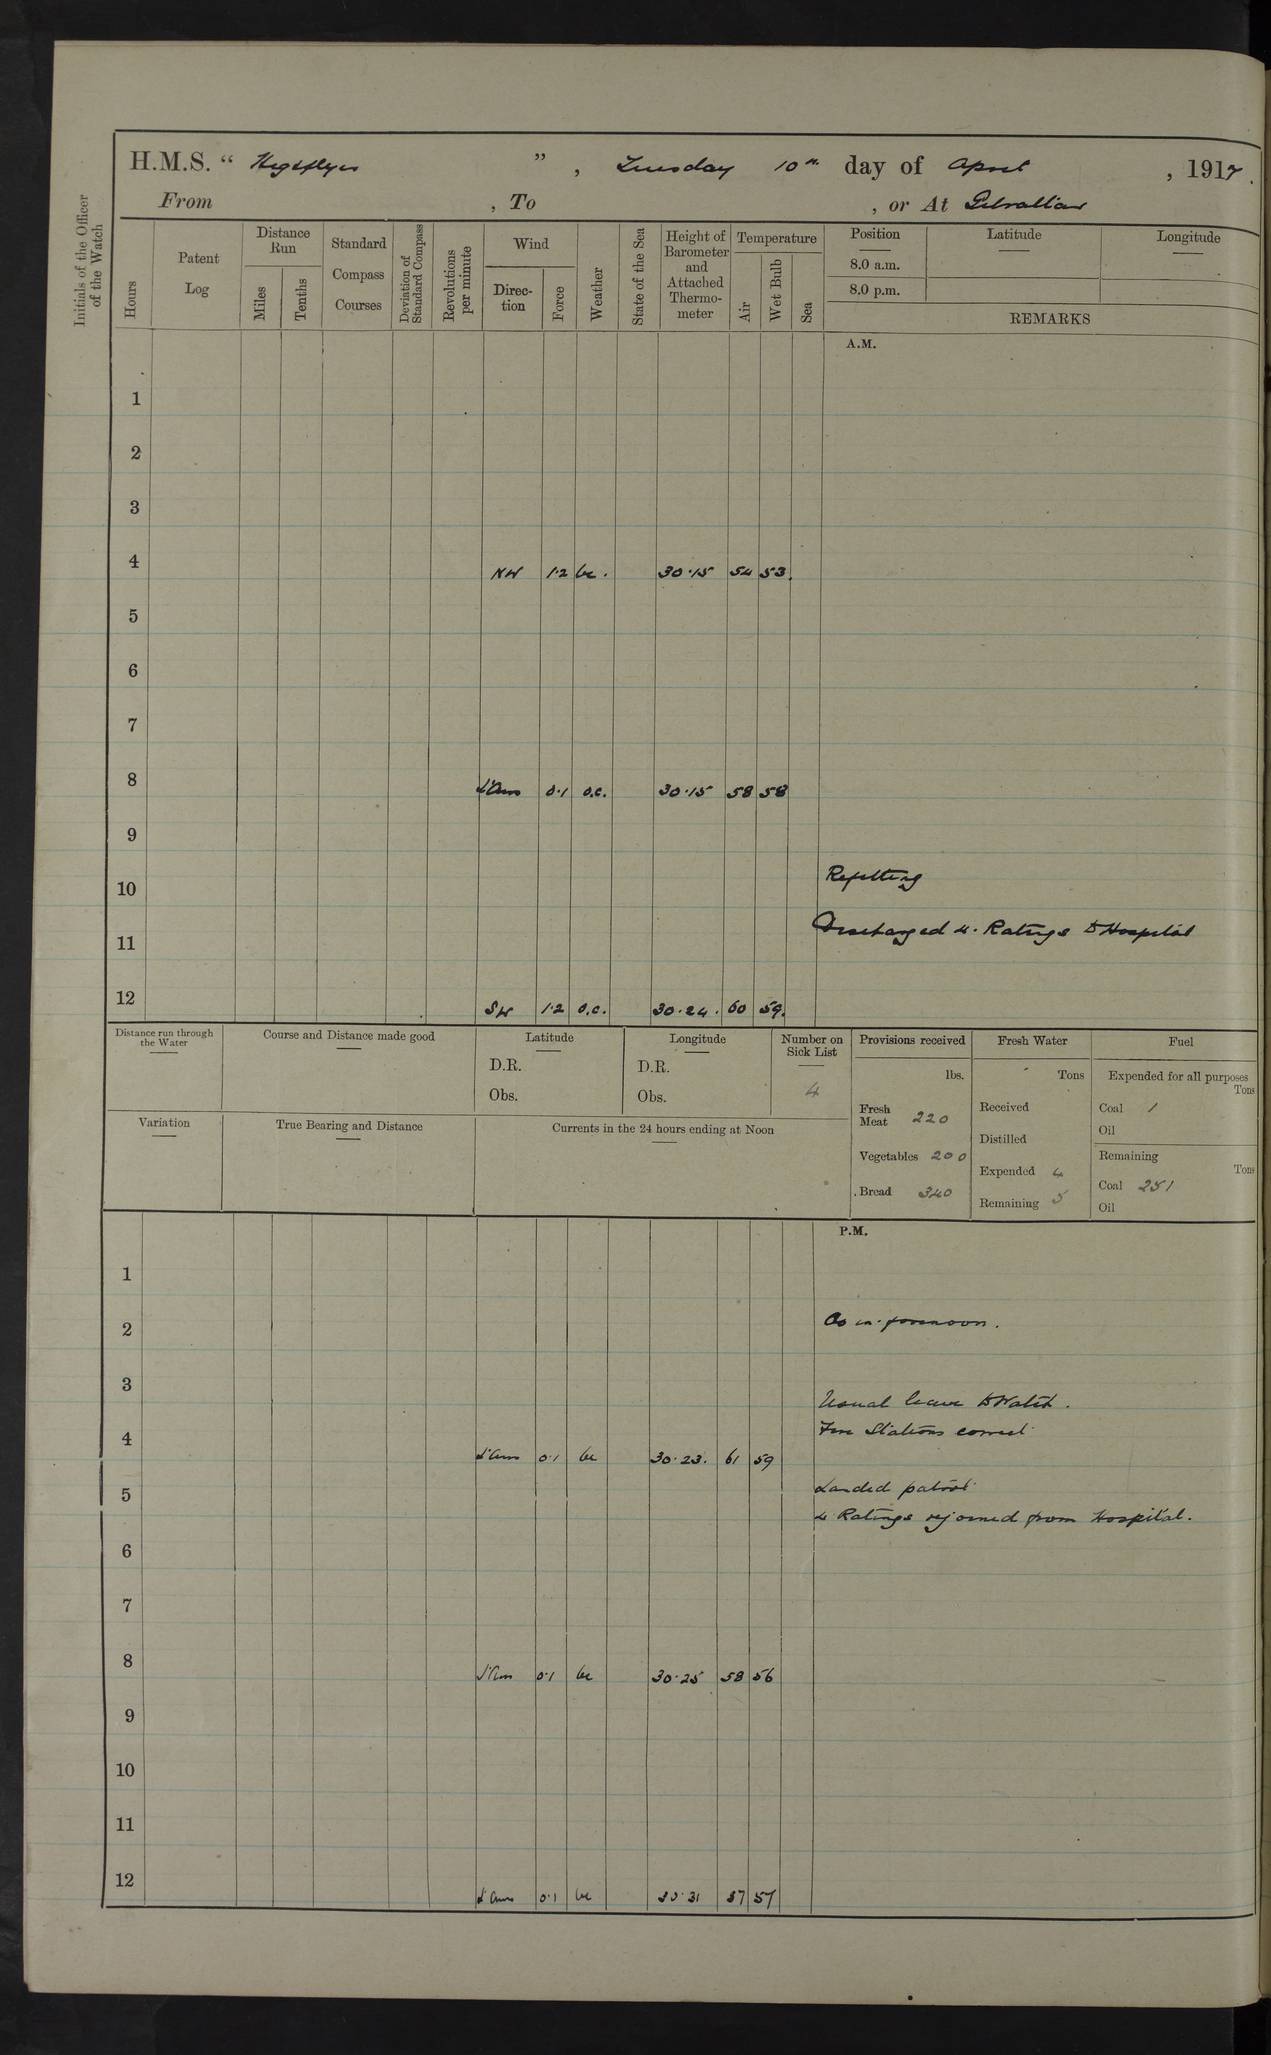 H.M.S. “ Highflyer ” , Tuesday 10th day of April , 1917.
From , To , or At Gibraltar
Initials of the Officer of the Watch
Hours
Patent Log
Distance Run
Miles
Tenths
Standard Compass Courses
Deviation of Standard Compass
Revolutions per minute
Wind
Direc-tion
Force
Weather
State of the Sea
Height of Barometer and Attached Thermo-meter
Temperature
Air
Wet Bulb
Sea
Position
8.0 a.m.
8.0 p.m.
Latitude
Longitude
REMARKS
A.M.
1
2
3
4 NW 1·2 bc. 30·15 54 53.
5
6
7
8 L'Airs 0·1 o.c. 30·15 58 58
9
Refitting
10
Discharged 4. Ratings to Hospital
11
12 SW 1·2 o.c. 30·24. 60 59.
Distance run through the Water
Course and Distance made good
Latitude
D.R.
Obs.
Longitude
D.R.
Obs.
Number on Sick List
4
Provisions received
lbs.
Fresh Meat 220
Vegetables 200
Bread 340
Fresh Water
Tons
Received
Distilled
Expended 4
Remaining 5
Fuel
Expended for all purposes
Tons
Coal 1
Oil
Remaining
Tons
Coal 251
Oil
Variation
True Bearing and Distance
Currents in the 24 hours ending at Noon
P.M.
1
2 As in forenoon.
3
Usual leave to Watch.
Fire Stations correct
4 L'Airs 0·1 bc 30·23. 61 59
Landed patrol
5
4 Ratings rejoined from Hospital.
6
7
8 L'Airs 0·1 bc 30·25 58 56
9
10
11
12 L'Airs 0·1 bc 30·31 57 57